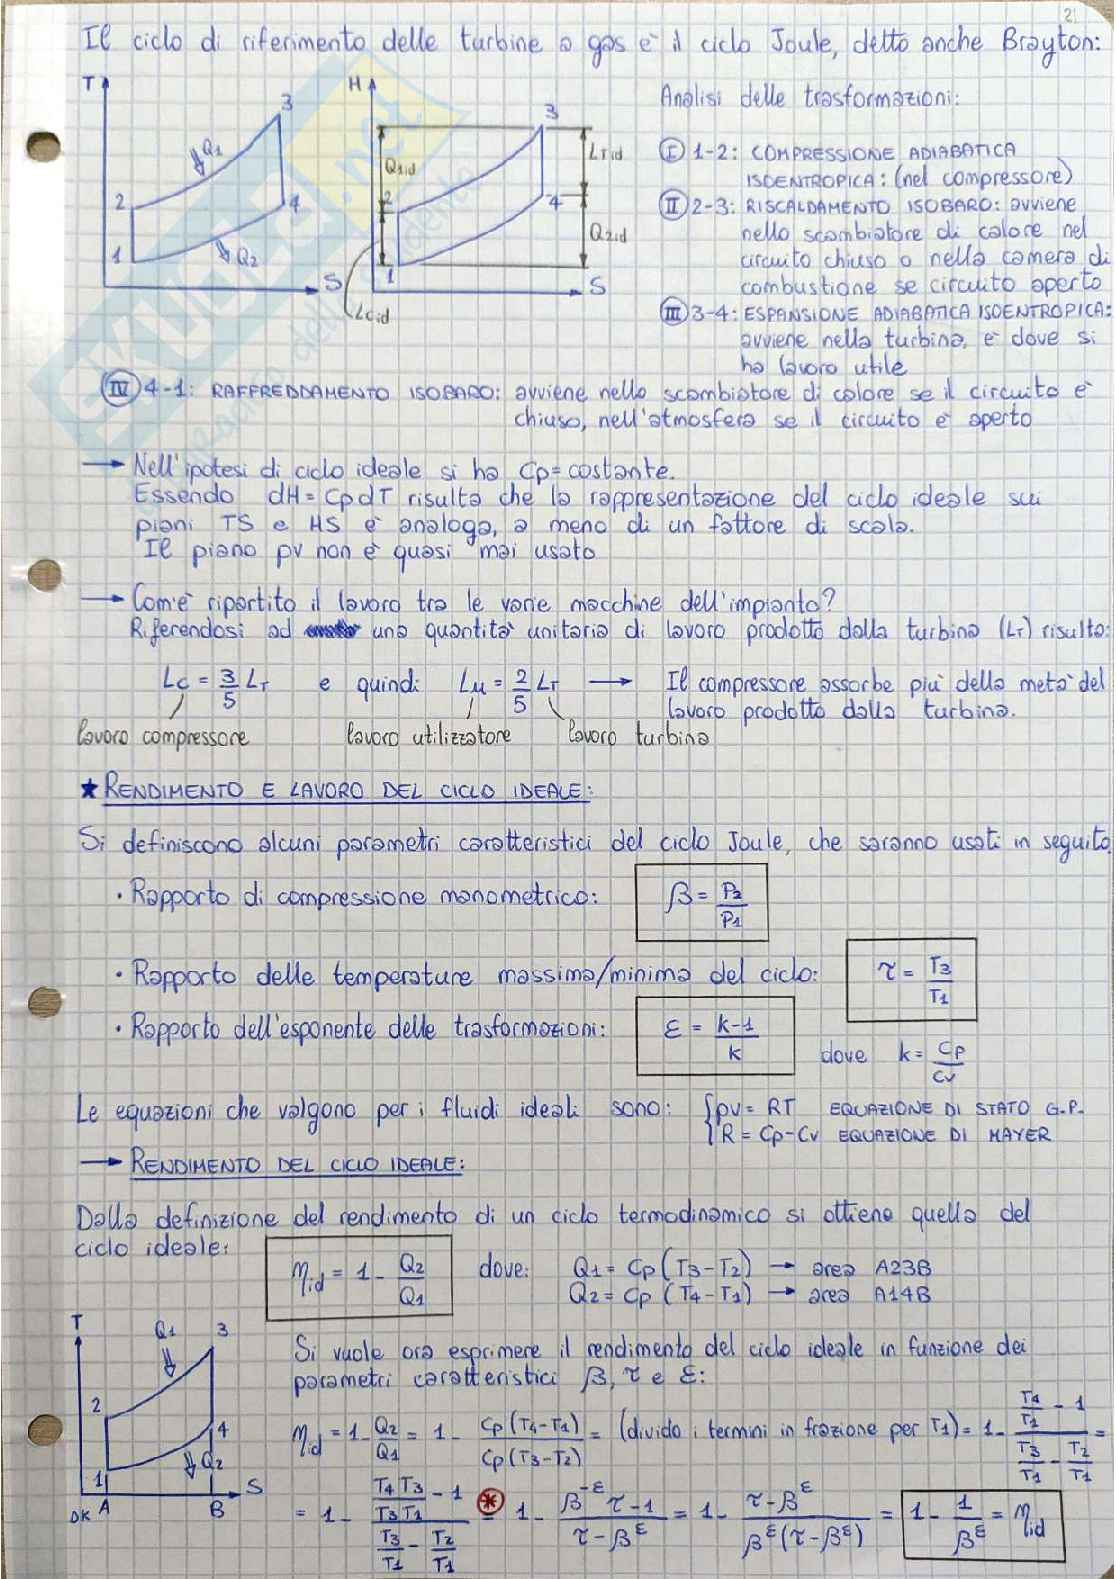 21
Il ciclo di riferimento delle turbine a gas è il ciclo Joule, detto anche Brayton:
T 3 Q1 2 4 1 Q2 S
H 3 LTid Q1id 2 4 Q2id 1 S Lcid
Analisi delle trasformazioni:
I 1-2: COMPRESSIONE ADIABATICA
ISOENTROPICA: (nel compressore)
II 2-3: RISCALDAMENTO ISOBARO: avviene
nello scambiatore di calore nel
circuito chiuso o nella camera di
combustione se circuito aperto
III 3-4: ESPANSIONE ADIABATICA ISOENTROPICA:
avviene nella turbina, è dove si
ha lavoro utile
IV 4-1: RAFFREDDAMENTO ISOBARO: avviene nello scambiatore di calore se il circuito è
chiuso, nell'atmosfera se il circuito è aperto
→ Nell'ipotesi di ciclo ideale si ha Cp = costante.
Essendo dH = CpdT risulta che la rappresentazione del ciclo ideale sui
piani TS e HS è analoga, a meno di un fattore di scala.
Il piano pv non è quasi mai usato
→ Com'è ripartito il lavoro tra le varie macchine dell'impianto?
Riferendosi ad una quantità unitaria di lavoro prodotto dalla turbina (LT) risulta:
Lc = 3/5 LT e quindi Lu = 2/5 LT → Il compressore assorbe più della metà del
lavoro prodotto dalla turbina.
lavoro compressore lavoro utilizzatore lavoro turbina
★ RENDIMENTO E LAVORO DEL CICLO IDEALE:
Si definiscono alcuni parametri caratteristici del ciclo Joule, che saranno usati in seguito
• Rapporto di compressione manometrico: β = P2/P1
• Rapporto delle temperature massima/minima del ciclo: τ = T3/T1
• Rapporto dell'esponente delle trasformazioni: ε = k-1/k dove k = Cp/Cv
Le equazioni che valgono per i fluidi ideali sono: { pv = RT EQUAZIONE DI STATO G.P.
R = Cp-Cv EQUAZIONE DI MAYER
→ RENDIMENTO DEL CICLO IDEALE:
Dalla definizione del rendimento di un ciclo termodinamico si ottiene quello del
ciclo ideale: ηid = 1 - Q2/Q1 dove: Q1 = Cp (T3-T2) → area A23B
Q2 = Cp (T4-T1) → area A14B
T Q1 3 2 4 1 Q2 S 0K A B
Si vuole ora esprimere il rendimento del ciclo ideale in funzione dei
parametri caratteristici β, τ e ε:
ηid = 1 - Q2/Q1 = 1 - Cp(T4-T1)/Cp(T3-T2) = (divido i termini in frazione per T1) = 1 - (T4/T1 - 1)/(T3/T1 - T2/T1) =
= 1 - (T4T3/T3T1 - 1)/(T3/T1 - T2/T1) =* 1 - (β^-ε τ - 1)/(τ - β^ε) = 1 - (τ - β^ε)/(β^ε(τ - β^ε)) = 1 - 1/β^ε = ηid